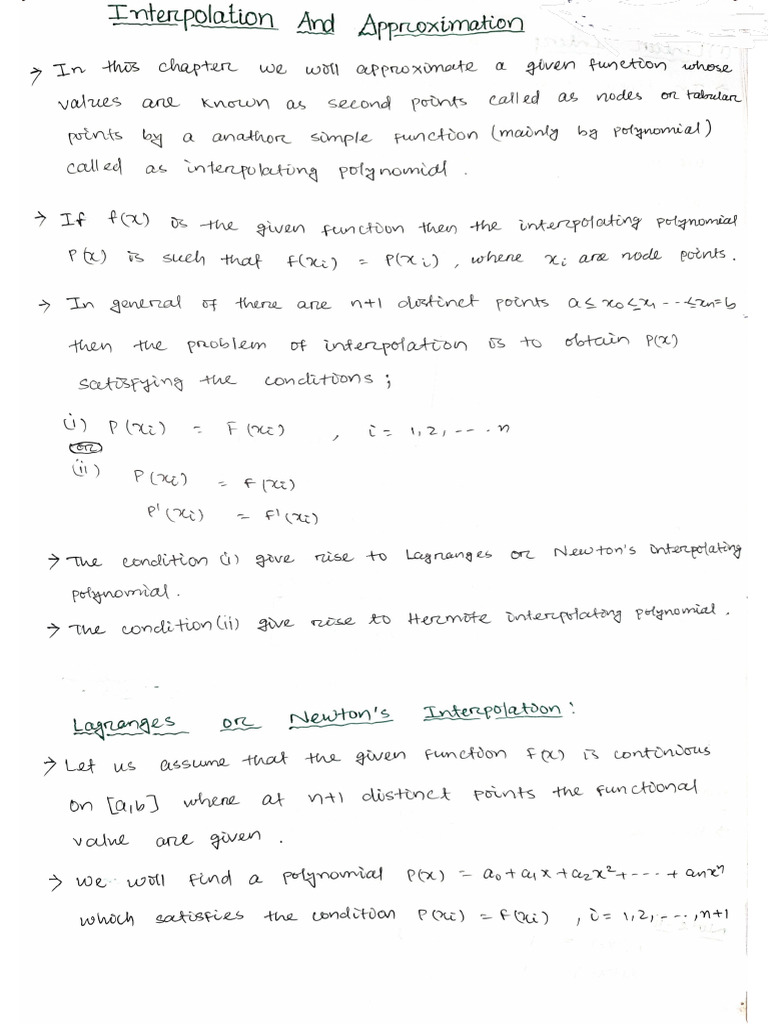 Interpolation And Approximation
→ In this chapter we will approximate a given function whose
values are known as second points called as nodes or tabular
points by a anathor simple function (mainly by polynomial)
called as interpolating polynomial.
→ If f(x) is the given function then the interpolating polynomial
P(x) is such that f(xi) = P(xi), where xi are node points.
→ In general if there are n+1 distinct points a ≤ x0 ≤ x1 --- ≤ xn = b
then the problem of interpolation is to obtain P(x)
satisfying the conditions;
(i) P(xi) = F(xi) , i = 1, 2, --- . n
or
(ii) P(xi) = f(xi)
P'(xi) = f'(xi)
→ The condition (i) give rise to Lagranges or Newton's interpolating
polynomial.
→ The condition (ii) give rise to Hermite interpolating polynomial.
Lagranges or Newton's Interpolation:
→ Let us assume that the given function f(x) is continious
on [a,b] where at n+1 distinct points the functional
value are given.
→ We will find a polynomial P(x) = a0 + a1x + a2x² + --- + anxⁿ
which satisfies the condition P(xi) = f(xi) , i = 1, 2, ---, n+1